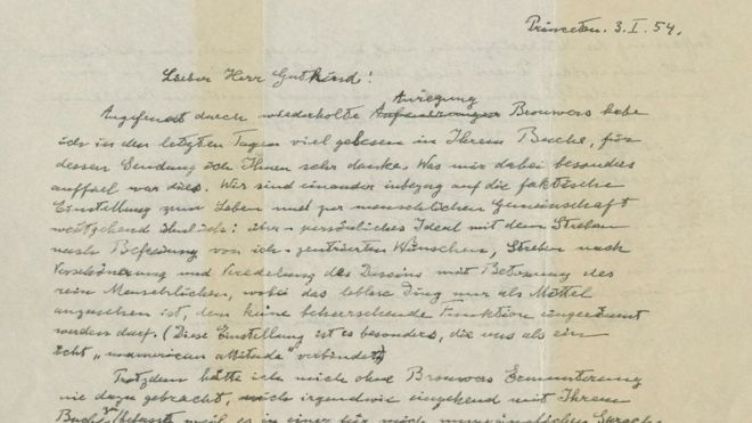 Princeton. 3. I. 54.
Lieber Herr Gutkind!
Angefeuert durch wiederholte Aufmunterungen Anregung Brouwers habe
ich in den letzten Tagen viel gelesen in Ihrem Buche, für
dessen Sendung ich Ihnen sehr danke. Was mir dabei besonders
auffiel war dies. Wir sind einander inbezug auf die faktische
Einstellung zum Leben und zur menschlichen Gemeinschaft
weitgehend ähnlich: über-persönliches Ideal mit dem Streben
nach Befreiung von ich-zentrierten Wünschen, Streben nach
Verschönerung und Veredelung des Daseins mit Betonung des
rein Menschlichen, wobei das leblose Ding nur als Mittel
anzusehen ist, dem keine beherrschende Funktion eingeräumt
werden darf. (Diese Einstellung ist es besonders, die uns als ein
echt „unamerican attitude" verbindet)
Trotzdem hätte ich mich ohne Brouwers Ermunterung
nie dazu gebracht, mich irgendwie eingehend mit Ihrem
Buche zu befassen, weil es in einer für mich unzugänglichen Sprache